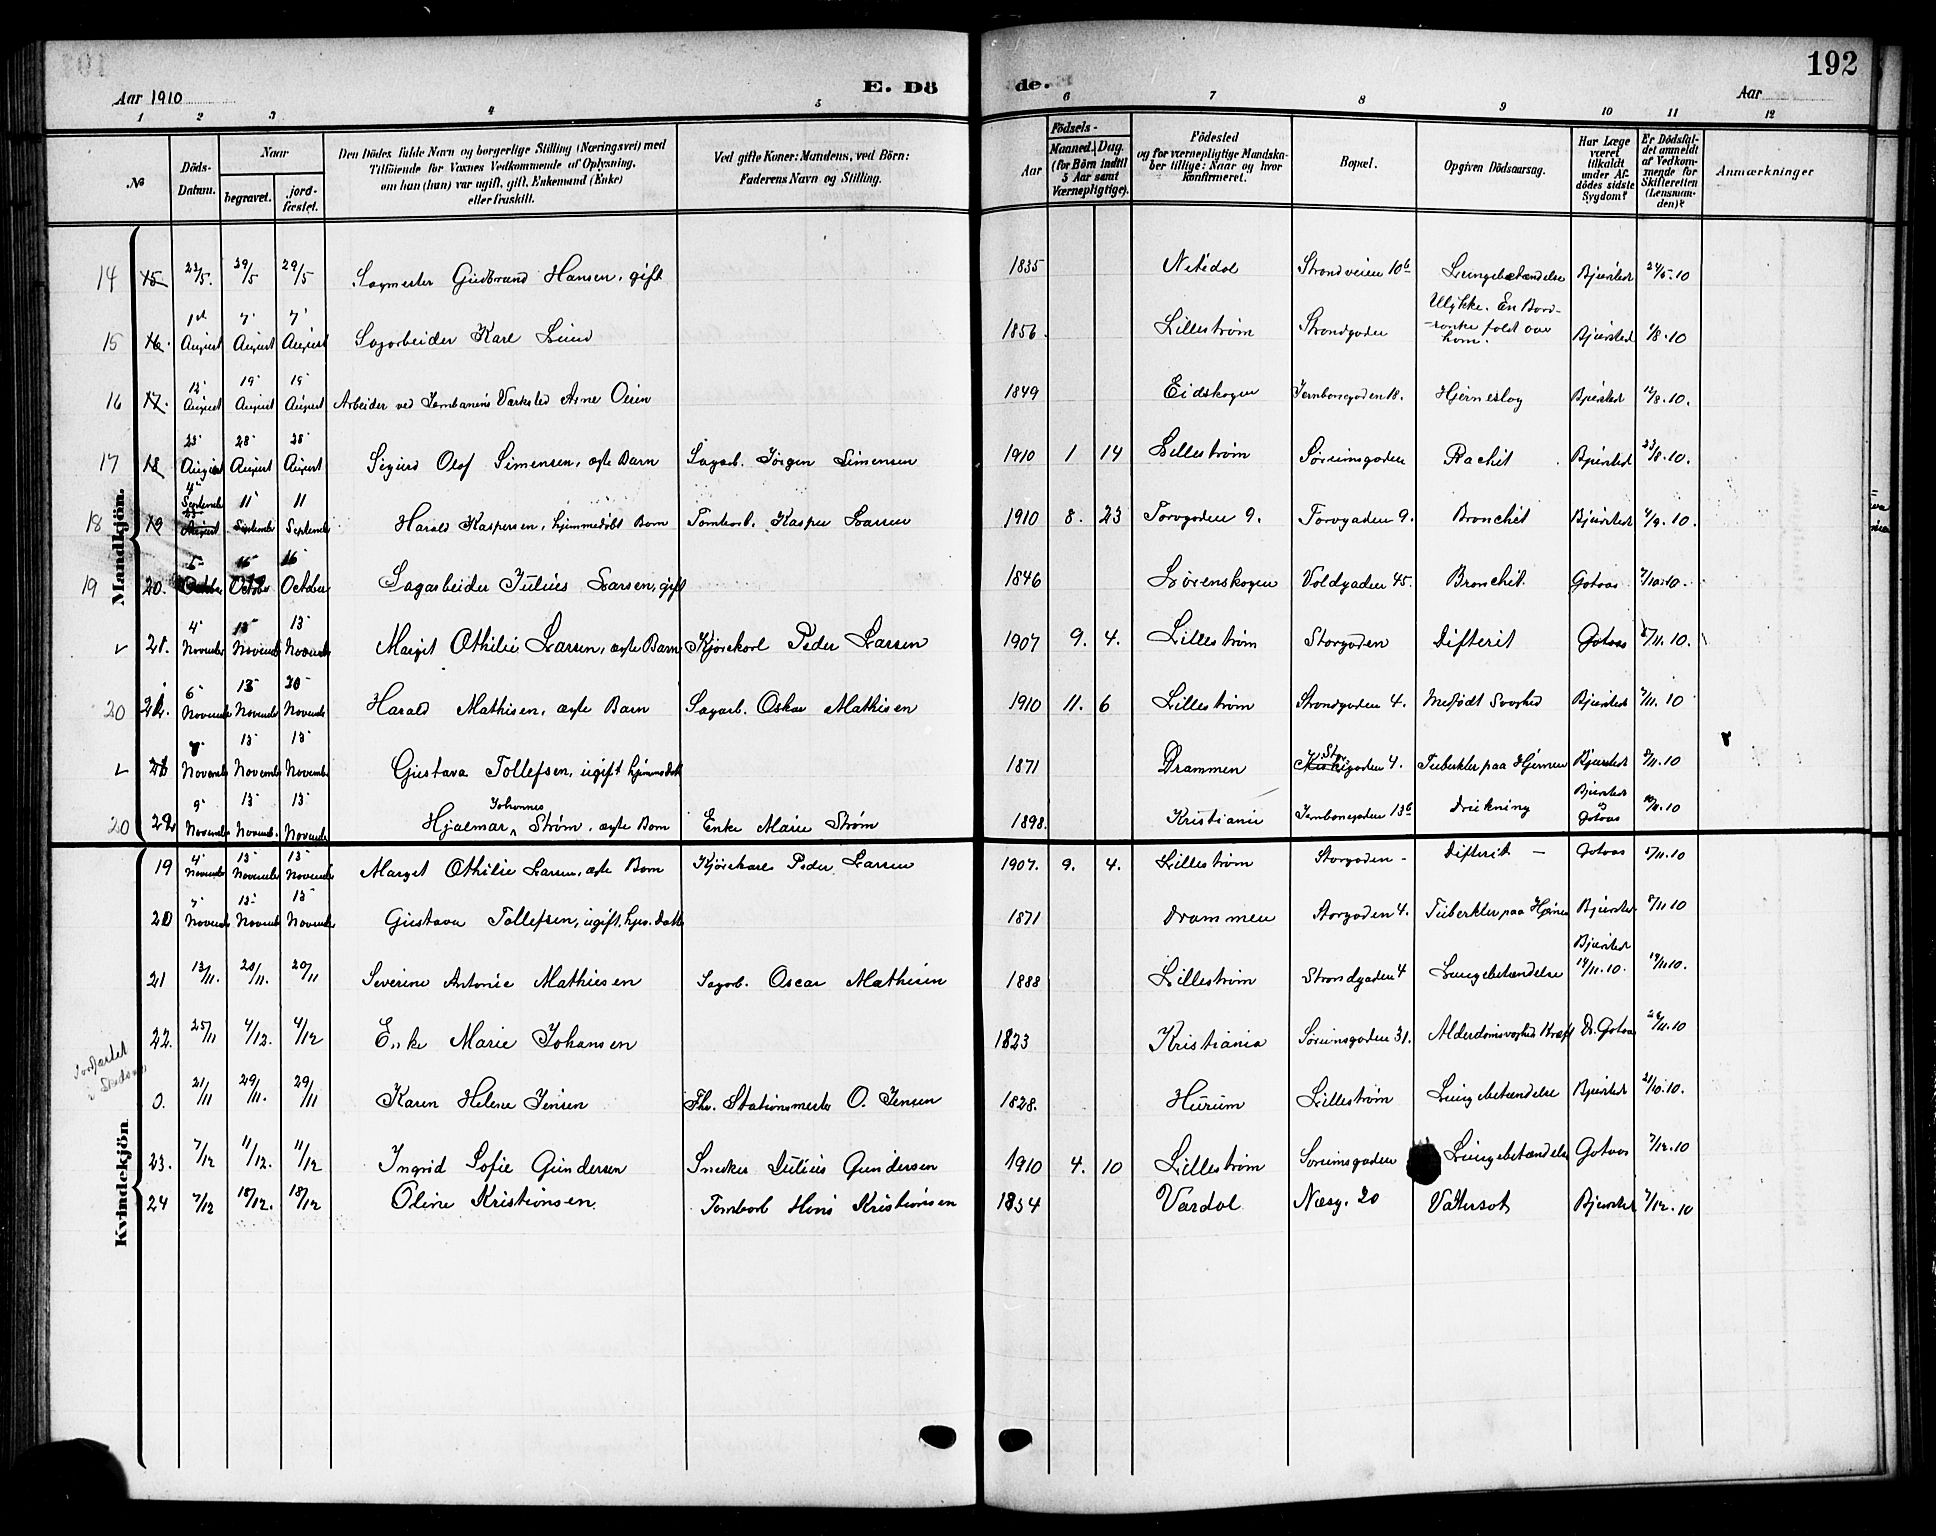 192
Aar 1910
E. Dö
de.
Aar
1 2 3 4 5 6 7 8 9 10 11 12
No
Döds-Datum.
Naar
begravet.
jordfæstet.
Den Dödes fulde Navn og borgerlige Stilling (Næringsvei) med Tilföiende for Voxnes Vedkommende af Oplysning, om han (hun) var ugift, gift, Enkemand (Enke) eller fraskilt.
Ved gifte Koner: Mandens, ved Börn: Faderens Navn og Stilling.
Födsels-
Aar
Maaned. Dag.
(for Börn indtil 5 Aar samt Værnepligtige).
Födested og for værnepligtige Mandskaber tillige: Naar og hvor konfirmeret.
Bopæl.
Opgiven Dödsaarsag.
Har Læge været tilkaldt under Afdödes sidste Sygdom?
Er Dödsfaldet anmeldt af Vedkommende for Skifteretten (Lensmanden)?
Anmærkninger
Mandkjön.
14 15 22/5. 29/5 29/5 Sagmester Gudbrand Hansen, gift 1835 Nitedal Strandveien 10b Lungebetændelse Bjursted 24/5.10
15 16. 1st August 7' August 7' August Sagarbeider Karl Lund 1856. Lillestrøm Strandgaden Ulykke. En Bord- faldt over ham. Bjursted /8.10
16 17. 12' August 19' August 19' August Arbeider ved Jernbanens Værksted Arne Oien 1849 Eidskogen Jernbanegaden 18. Hjerneslag Bjursted 12/8.10.
17 18 23' August 28' August 28' August Sigurd Olaf Simensen, ægte Barn Sagarb. Jørgen Simensen 1910 1 14 Lillestrøm Sørumsgaden Rachit Bjursted 23/8.10.
18 19 4' September August 11' September 11 September Harald Kaspersen, hjemmedøbt Barn Tomtearb. Kasper Larsen 1910 8. 23 Torvgaden 9. Torvgaden 9. Bronchit Bjursted /9.10.
19 20. 5' October 16' October 16 October Sagarbeider Julius Larsen, gift 1846 Lørenskogen Voldgaden 45. Bronchit Gotaas 7/10.10.
21. 4' November 13' November 13' November Margit Othilie Larsen, ægte Barn Kjørekarl Peder Larsen 1907 9. 4. Lillestrøm Storgaden Difterit Gotaas 5/11.10.
20 6' November 13' November 20' November Harald Mathisen, ægte Barn Sagarb. Oskar Mathisen 1910 11. 6 Lillestrøm Strandgaden 4. Medfødt Svaghed Bjursted /11.10
7' November 13' November 13' November Gustava Tollefsen, ugift hjemmedatt 1871 Drammen Storgaden 4. Tuberkler paa Hjernen Bjursted 8/11.10
20 22 9' November 13' Novemb. 13' November Hjalmar Johannes Strøm, ægte Barn Enke Marie Strøm 1898. Kristiania Jernbanegaden 13b Drukning Bjursted og Gotaas /11.10
Kvindekjön
19 4' November 13' November 13' November Margit Othilie Larsen, ægte Barn Kjørekarl Peder Larsen 1907. 9. 4. Lillestrøm Storgaden - Difterit - Gotaas 5/11.10
20 7' November 13' November 13' November Gustava Tollefsen, ugift, hjem. datt 1871 Drammen Storgaden 4. Tuberkler paa Hjernen Bjursted 8/11 10
21 13/11. 20/11. 20/11 Severine Antonie Mathiesen Sagarb. Oscar Mathisen 1888 Lillestrøm Strandgaden 4 Lungebetændelse Bjursted 14/11.10. 14/11 10.
22. 25/11 4/12. 4/12 Enke Marie Johansen 1823 Kristiania Sørumsgaden 31. Dr. Gotaas 26/11.10
Jordfæstet i
0. 21/11 29/11. 29/11 Karen Helene Jensen Fhv. Stationsmester O. Jensen 1828. Hurum Lillestrøm Lungebetændelse Bjursted 21/10.10.
23. 7/12 11/12. 11/12 Ingrid Sofie Gundersen Snedker Julius Gundersen 1910 4. 10 Lillestrøm Sørumsgaden Lungebetændelse Gotaas 7/12.10
24 7/12 18/12. 18/12 Oline Kristiansen. Tomtearb Hans Kristiansen 1854 Vardal Næsg. 20 Vattersot Bjursted 7/12.10